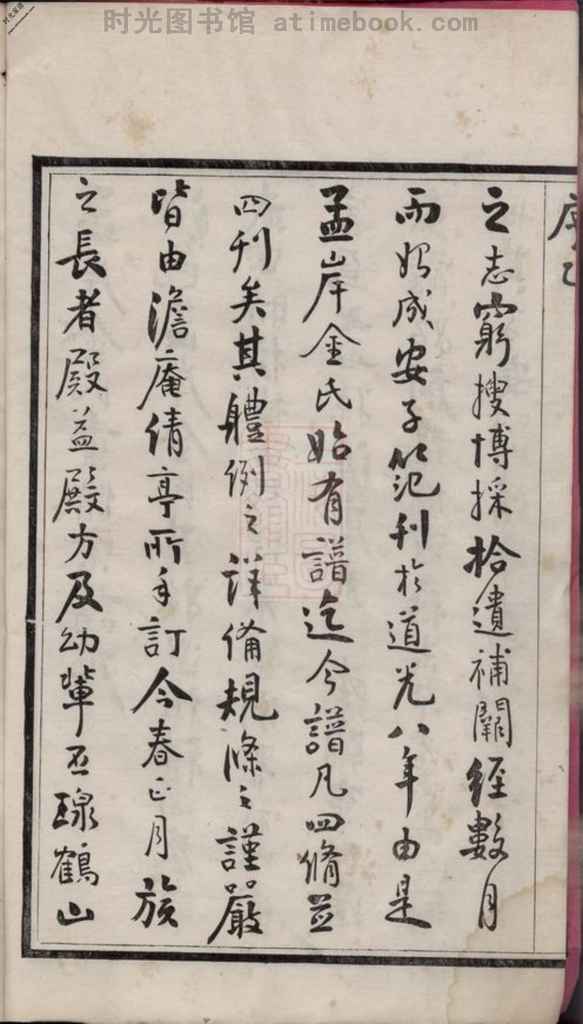 时光图书馆 atimebook.com
序
之志窮搜博採拾遺補闕經數月
而始成安子笵刊於道光八年由是
孟岸金氏始有譜迄今譜凡四脩並
四刊矣其體例之詳備規條之謹嚴
皆由澹庵倩亭所手訂今春正月族
之長者殿益殿方及幼輩丕璟鶴山